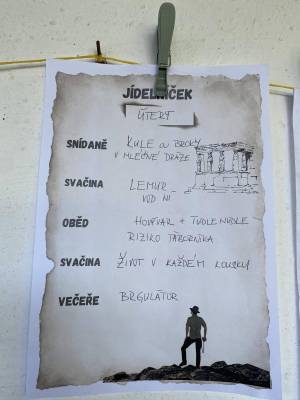 JÍDELNÍČEK
ÚTERÝ
SNÍDANĚ
KULE A BROKY
V MLÉČNÉ DRÁZE
SVAČINA
LEMUR
VOD NI
OBĚD
RIZIKO TÁBORNÍKA
SVAČINA
ŽIVOT V KAŽDÉM KOUSKU
VEČEŘE
BRGULÁTUR